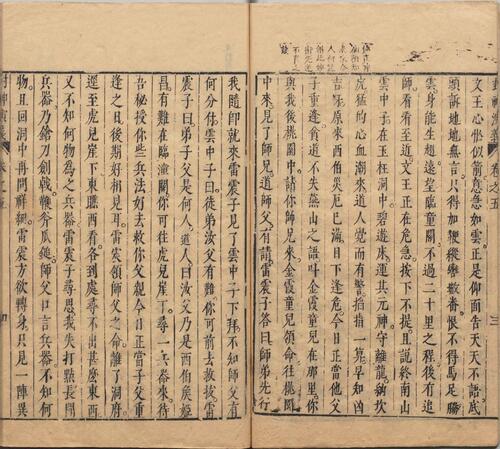 文王心忙似箭意急如雲正是仰面告天天不語底
頭訴地地無言只得加鞭縱轡恨不得馬足騰
雲身能生翅遠望臨潼關不過二十里之程後有追
師看看至近文王正在危急按下不提且說終南山
雲中子在玉柱洞中碧遊床運其元神守離龍納坎
虎猛的心血潮來道人覺而有警掐指一算早知凶
吉呀原來西伯災厄已滿目下逢危今日正當他父
子重逢貧道不失燕山之語叫金霞童兒在那里你
與我後桃園中請你師兄來金霞童兒領命往桃園
中來見了師兄道師父有請雷震子荅曰師弟先行
我隨即就來雷震子見了雲中子下拜不知師父有
何分付雲中子曰徒弟汝父有難你可前去救拔雷
震子曰弟子父是何人道人曰汝父乃是西伯侯姬
昌有難在臨潼關你可往虎兒崖下尋一兵器來待
吾秘授你些兵法好去救你父親今日正當子父重
逢之日後期好相見耳雷震領師父之命離了洞府
逕至虎兒崖下東瞧西看各到處尋不出甚麽東西
又不知何物爲之兵器雷震子尋思我失打點長聞
兵器乃鎗刀劍戟鞭斧瓜鎚師父口言兵器不知何
物且回洞中再問詳細雷震方欲轉身只見一陣異